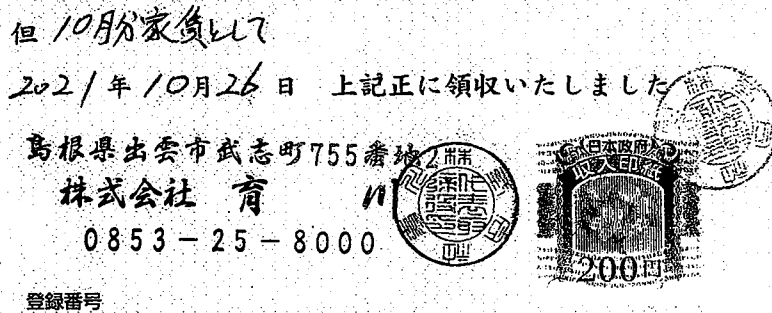 但 10月分家賃として
2021年10月26日 上記正に領収いたしました
島根県出雲市武志町755番地2
株式会社 育 川
0853-25-8000
日本政府
収入印紙
200円
登録番号